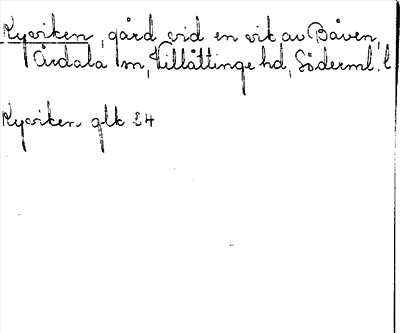 Kyrviken, gård vid en vik av Båven,
Årdala sn, Villåttinge hd, Söderml. l
Kyrviken glk 24